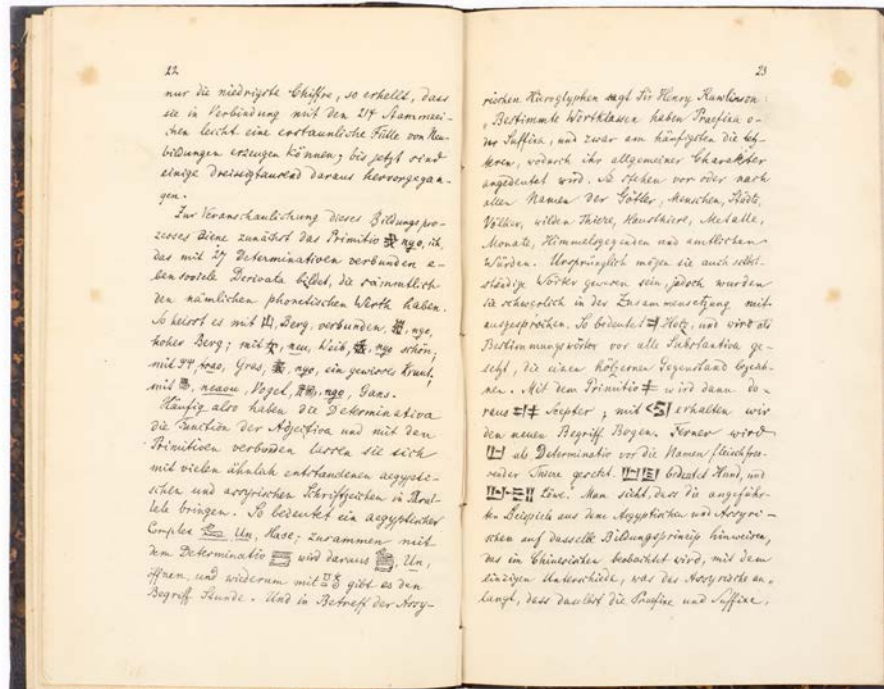 22
nur die niedrigste Chiffre, so erhellt, dass
sie in Verbindung mit den 214 Stammzei-
chen leicht eine erstaunliche Fülle von Neu-
bildungen erzeugen können; bis jetzt sind
einige dreissigtausend daraus hervorgegan-
gen.
Zur Veranschaulichung dieses Bildungspro-
zesses diene zunächst das Primitiv 我 ngo, ich,
das mit 27 Determinativen verbunden e-
bensoviele Derivata bildet, die sämmtlich
den nämlichen phonetischen Werth haben.
So heisst es mit 山, Berg, verbunden, 峩, ngo,
hoher Berg; mit 女, neu, Weib, 娥, ngo schön;
mit 艹, tsao, Gras, 莪, ngo, ein gewisses Kraut,
mit 鳥, neaou, Vogel, 鵞, ngo, Gans.
Häufig also haben die Determinativa
die Function der Adjectiva und mit den
Primitiven verbunden lassen sie sich
mit vielen ähnlich entstandenen aegypti-
schen und assyrischen Schriftzeichen in Paral-
lele bringen. So bedeutet ein aegyptischer
Complex Un, Hase; zusammen mit
dem Determinativ wird daraus Un,
öffnen, und wiederum mit gibt es den
Begriff Stunde. Und in Betreff der Assy-
23
rischen Hieroglyphen sagt Sir Henry Rawlinson:
„Bestimmte Wörtklassen haben Praefixa o-
der Suffixa, und zwar am häufigsten die letz-
teren, wodurch ihr allgemeiner Charakter
angedeutet wird. Sie stehen vor oder nach
allen Namen der Götter, Menschen, Städte,
Völker, wilden Thiere, Hausthiere, Metalle,
Monate, Himmelsgegenden und amtlichen
Würden. Ursprünglich mögen sie auch selbst-
ständige Wörter gewesen sein, jedoch wurden
sie schwerlich in der Zusammensetzung mit-
ausgesprochen. So bedeutet Holz, und wird als
Bestimmungswörter vor alle Substantiva ge-
setzt, die einen hölzernen Gegenstand bezeich-
nen. Mit dem Primitiv wird dann da-
raus Scepter; mit erhalten wir
den neuen Begriff Bogen. Ferner wird
als Determinativ vor die Namen fleischfres-
sender Thiere gesetzt. bedeutet Hund, und
Löwe. Man sieht, dass die angeführ-
ten Beispiele aus dem Aegyptischen und Assyri-
schen auf dasselbe Bildungsprincip hinweisen,
das im Chinesischen beobachtet wird, mit dem
einzigen Unterschiede, was das Assyrische an-
langt, dass daselbst die Praefixe und Suffixe,